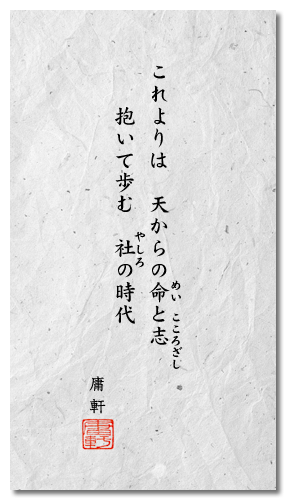 これよりは　天からの命と志
めい　こころざし
抱いて歩む　社の時代
やしろ
庸軒